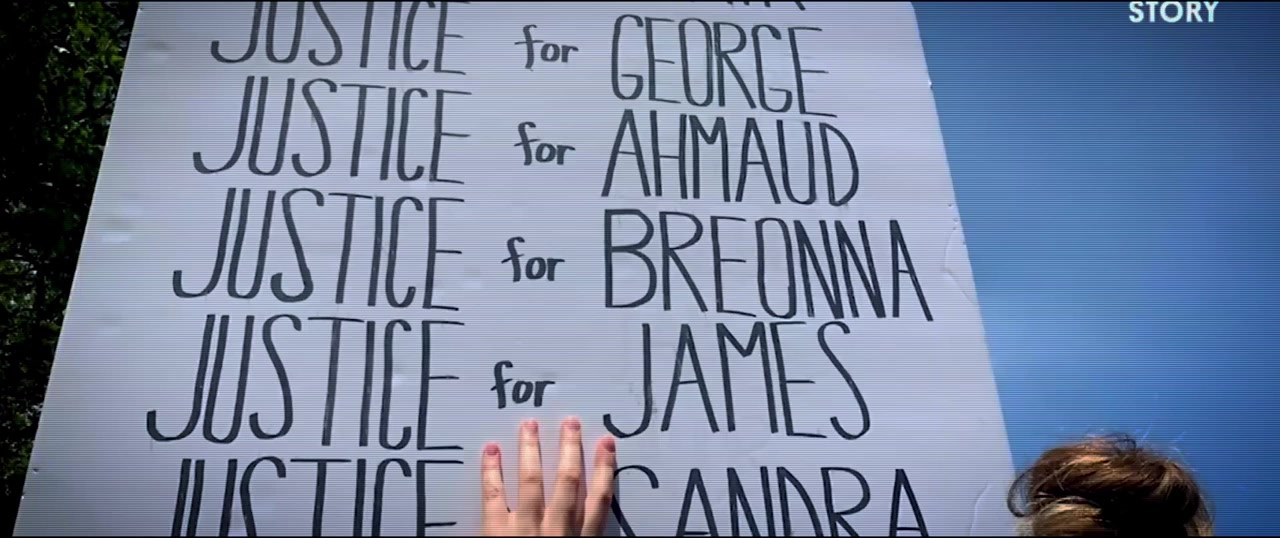 STORY
JUSTICE for GEORGE
JUSTICE for AHMAUD
JUSTICE for BREONNA
JUSTICE for JAMES
JUSTICE SANDRA